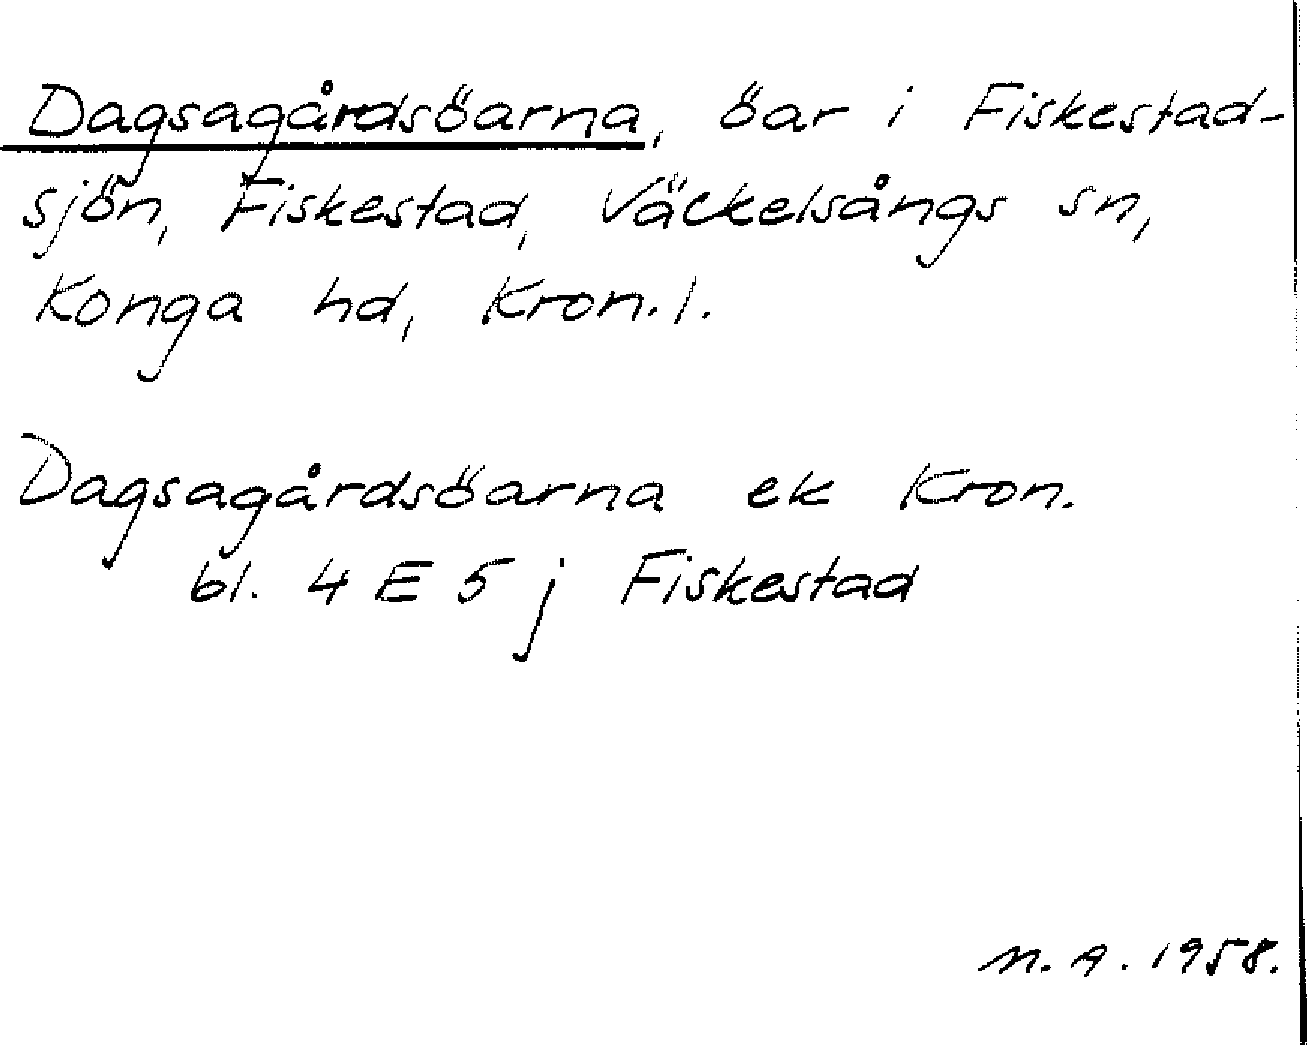 Dagsagårdsöarna, öar i Fiskestad-
sjön, Fiskestad, Väckelsångs sn,
Konga hd, Kron.l.
Dagsagårdsöarna ek Kron.
bl. 4 E 5 j Fiskestad
M.A. 1958.